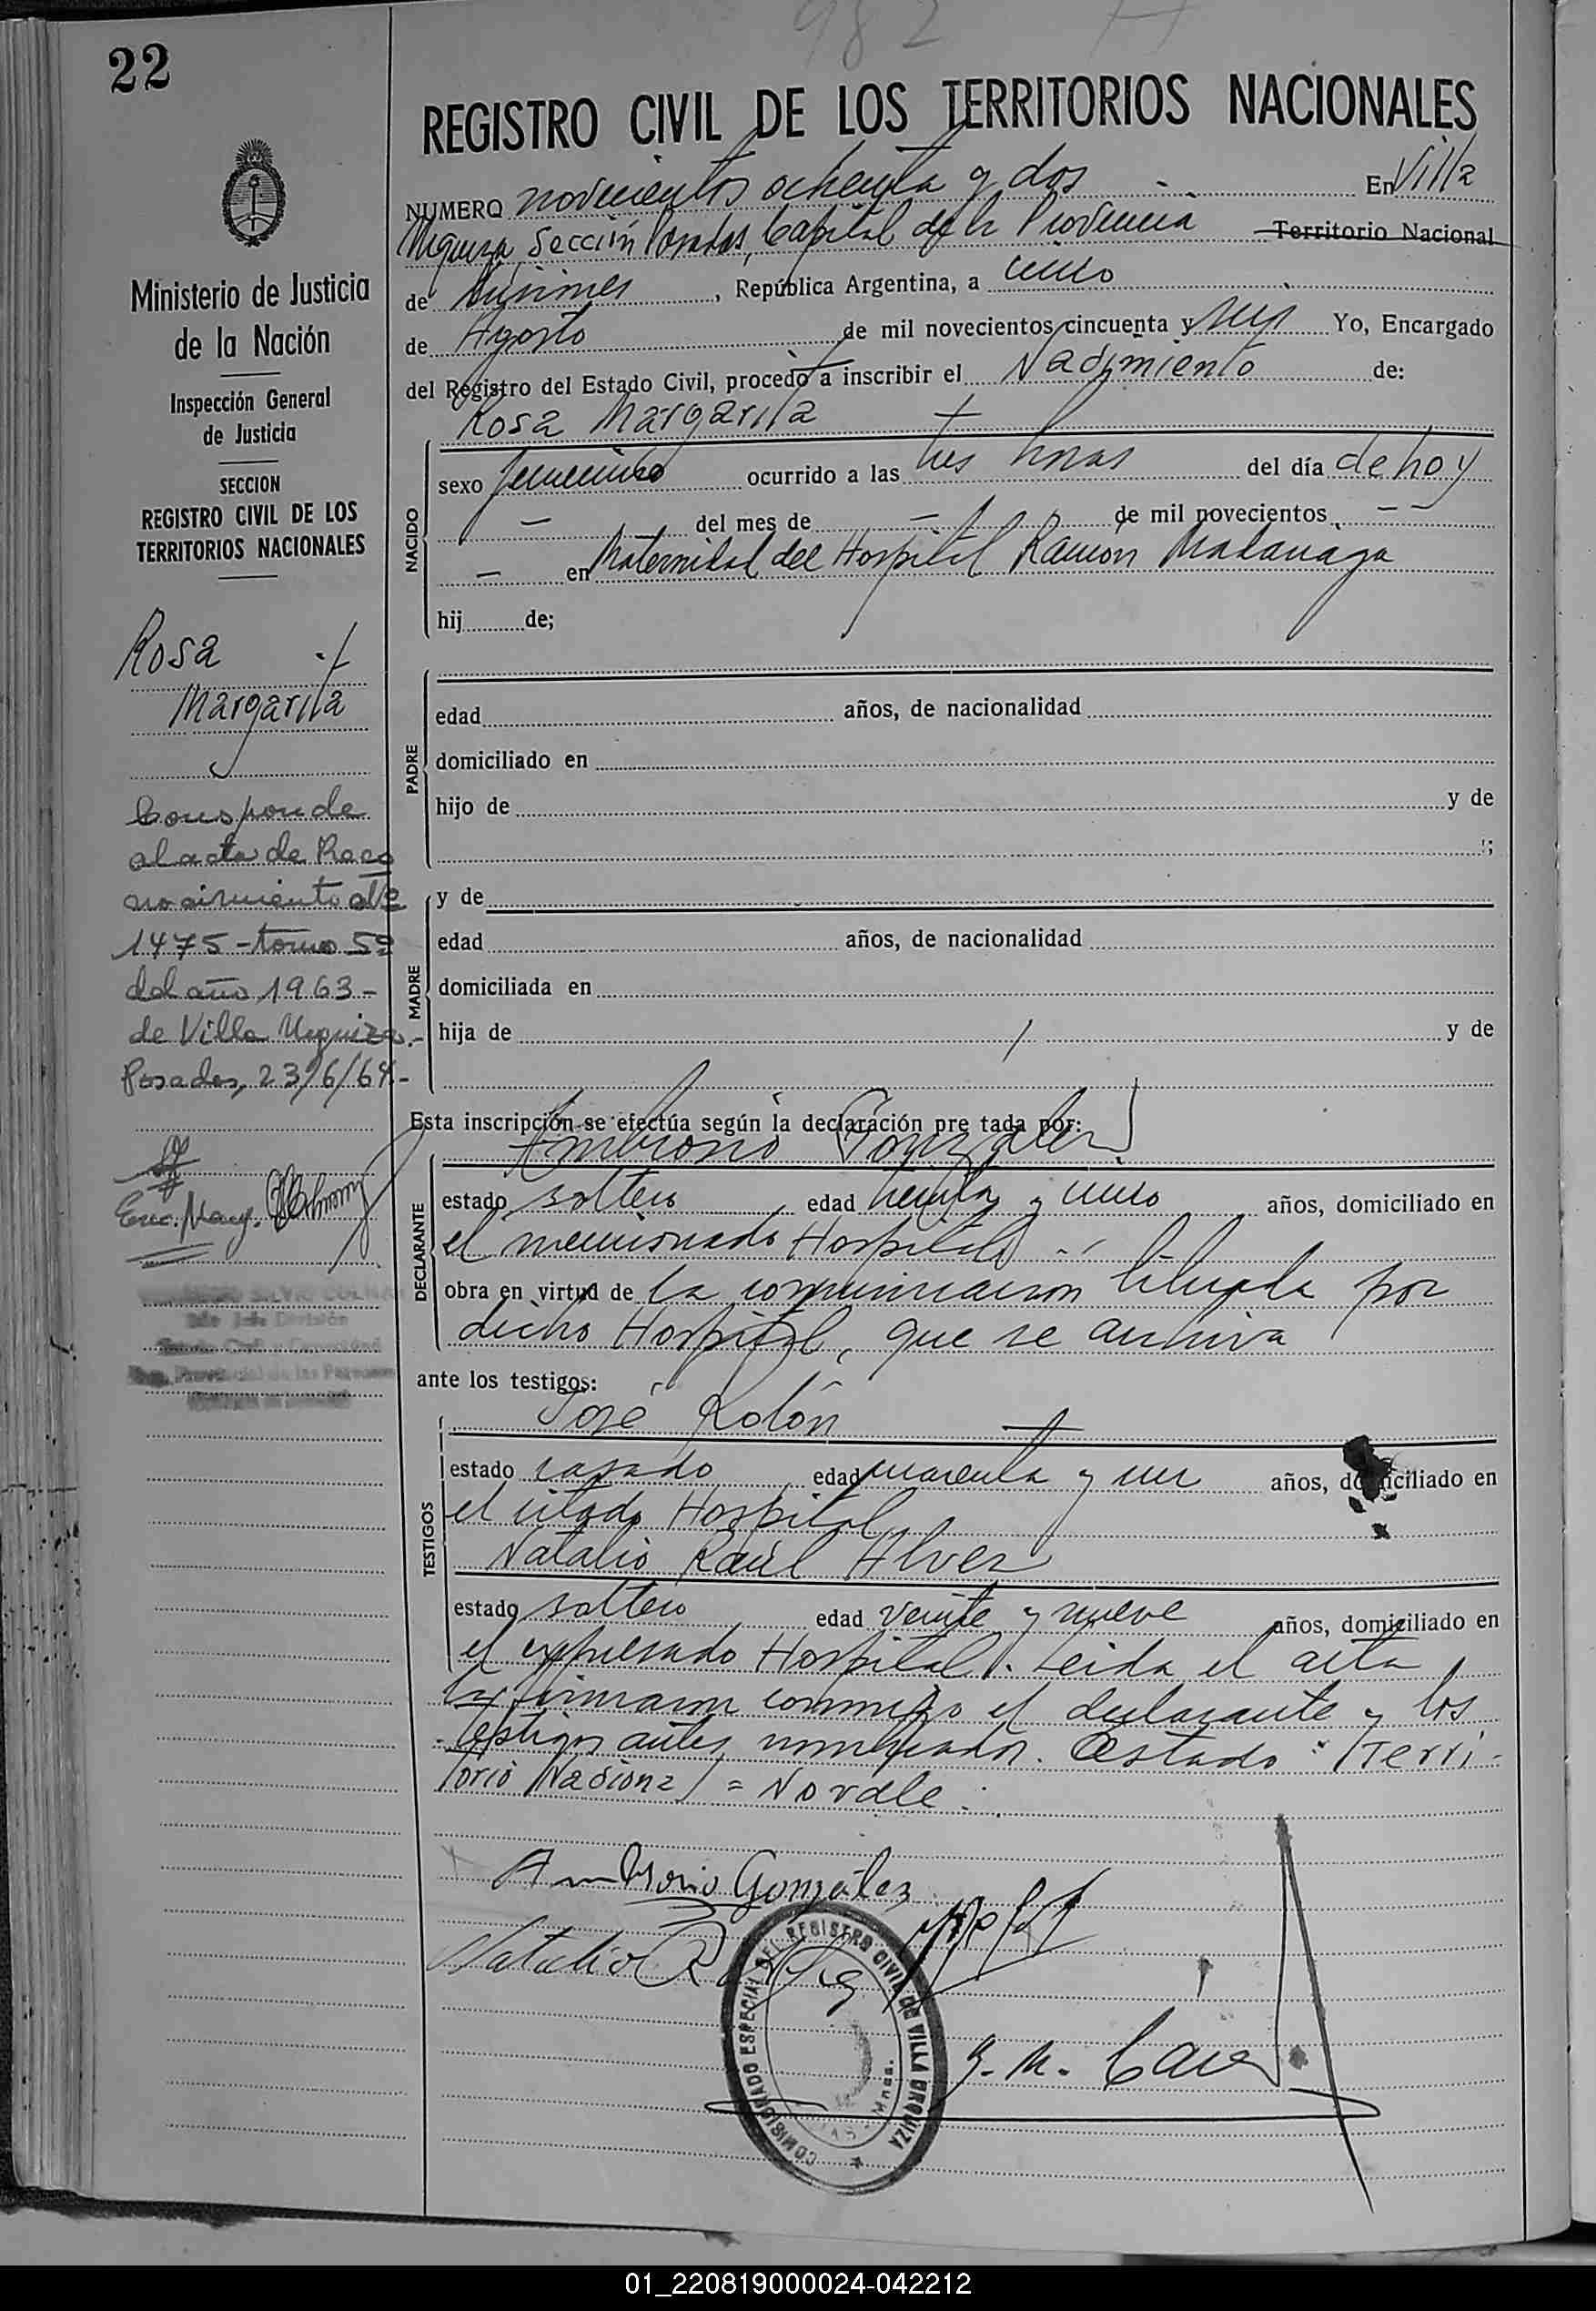 982
22
REGISTRO CIVIL DE LOS TERRITORIOS NACIONALES
NUMERO novecientos ochenta y dos En Villa
Urquiza, Sección Posadas, Capital de la Provincia Territorio Nacional
de Misiones, República Argentina, a uno
de Agosto de mil novecientos cincuenta y seis Yo, Encargado
del Registro del Estado Civil, procedo a inscribir el Nacimiento de:
Rosa Margarita
NACIDO
sexo femenino ocurrido a las tres horas del día de hoy
— del mes de — de mil novecientos — —
— en Maternidad del Hospital Ramón Madariaga
hij de;
PADRE
edad años, de nacionalidad
domiciliado en
hijo de y de
;
MADRE
y de
edad años, de nacionalidad
domiciliada en
hija de y de
Esta inscripción se efectúa según la declaración pre tada por:
Ambrosio González
DECLARANTE
estado soltero edad treinta y uno años, domiciliado en
el mencionado Hospital
obra en virtud de la comunicacion librada por
dicho Hospital, que se archiva
ante los testigos:
José Rolón
TESTIGOS
estado casado edad cuarenta y un años, domiciliado en
el citado Hospital
Natalio Raúl Alvez
estado soltero edad veinte y nueve años, domiciliado en
el expresado Hospital. Leida el acta
la firmaron conmigo el declarante y los
testigos antes nombrados. Testado: Terri-
torio Nacional = No vale.
Ambrosio González
Natalio R
COMISIONADO ESPECIAL DEL REGISTRO CIVIL DE VILLA URQUIZA
Mnes.
Ministerio de Justicia
de la Nación
Inspección General
de Justicia
SECCION
REGISTRO CIVIL DE LOS
TERRITORIOS NACIONALES
Rosa
Margarita
Corresponde
al acta de Reco
nocimiento nº
1475 - tomo 5º
del año 1963 -
de Villa Urquiza.-
Posadas, 23/6/64-
01_220819000024-042212